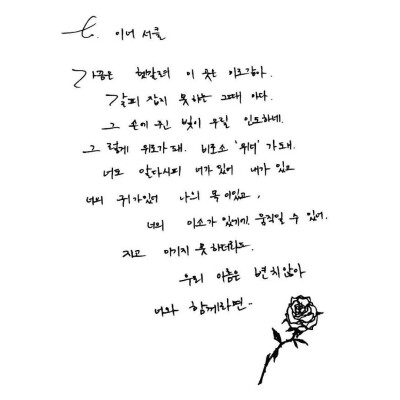 t. 이너 서클
가끔은 헷갈려 이 웃는 이조차가.
갈피 잡지 못 하는 그때 이다.
그 손에 쥔 빛이 우릴 인도하네.
그 렇게 위로가 돼. 비로소 '위너' 가 돼.
너도 알다시피 너가 있어 내가 있고
너의 귀가 있어 나의 목 이 있고,
너의 미소가 있기에, 움직일 수 있어.
지고 이기지 못 하더라도.
우리 이름은 변치 않아
너와 함께라면..